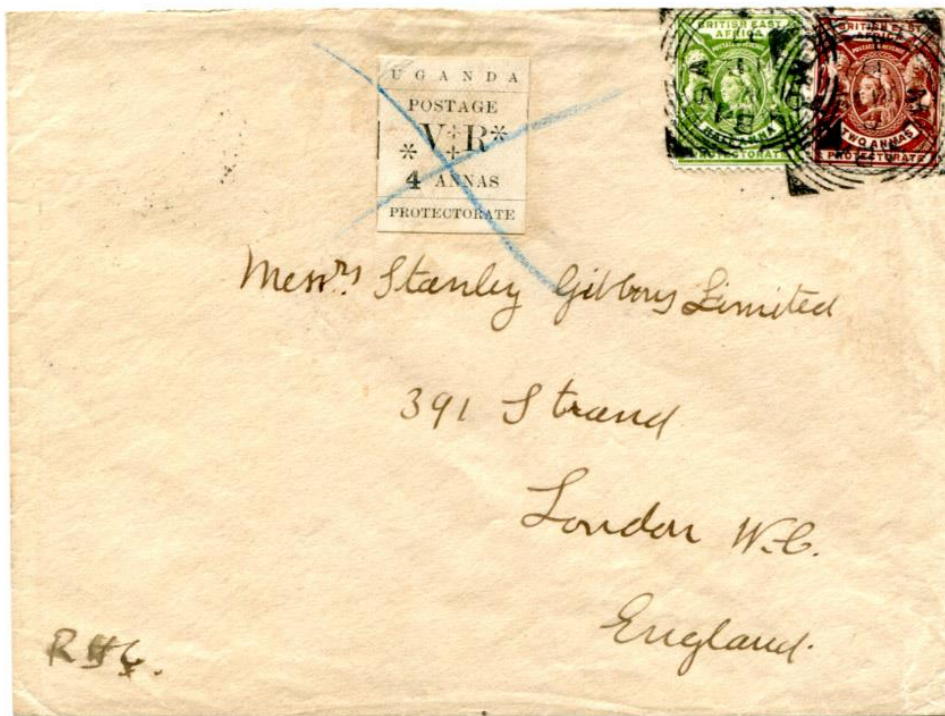 UGANDA
POSTAGE
* V R *
4 ANNAS
PROTECTORATE
BRITISH EAST
AFRICA
POSTAGE & REVENUE
HALF ANNA
PROTECTORATE
BRITISH EAST
AFRICA
POSTAGE & REVENUE
TWO ANNAS
PROTECTORATE
Messrs. Stanley Gibbons Limited
391 Strand
London W.C.
England.